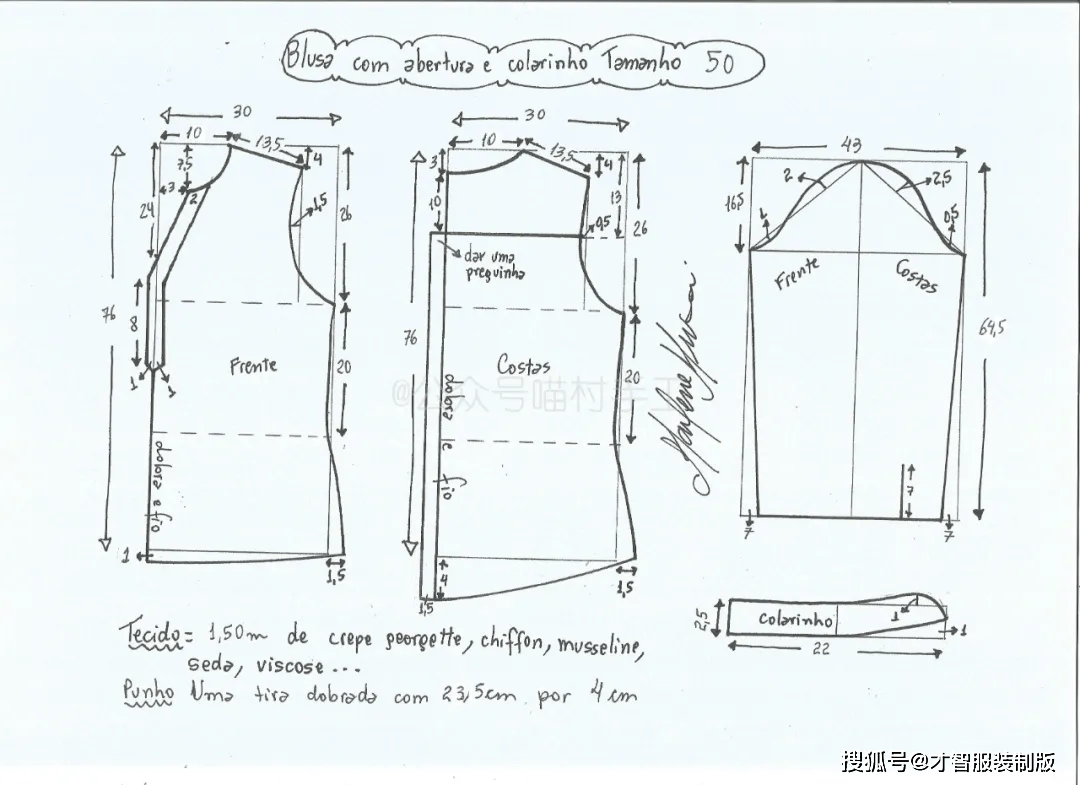 Blusa com abertura e colarinho Tamanho 50
30
10
13,5
7,5
4
3
2
24
1,5
26
76
8
1
1
Frente
20
dobra e fio
1
1,5
30
10
13,5
3
4
10
13
0,5
26
dar uma
preguinha
76
Costas
20
dobra e fio
4
1,5
1,5
43
2
2,5
16,5
1
0,5
Frente
Costas
64,5
7
7
7
Colarinho
2,5
1
1
22
Tecido = 1,50m de crepe georgette, chiffon, musseline,
seda, viscose ...
Punho Uma tira dobrada com 23,5cm por 4 cm
@公众号喵村手工
搜狐号@才智服装制版